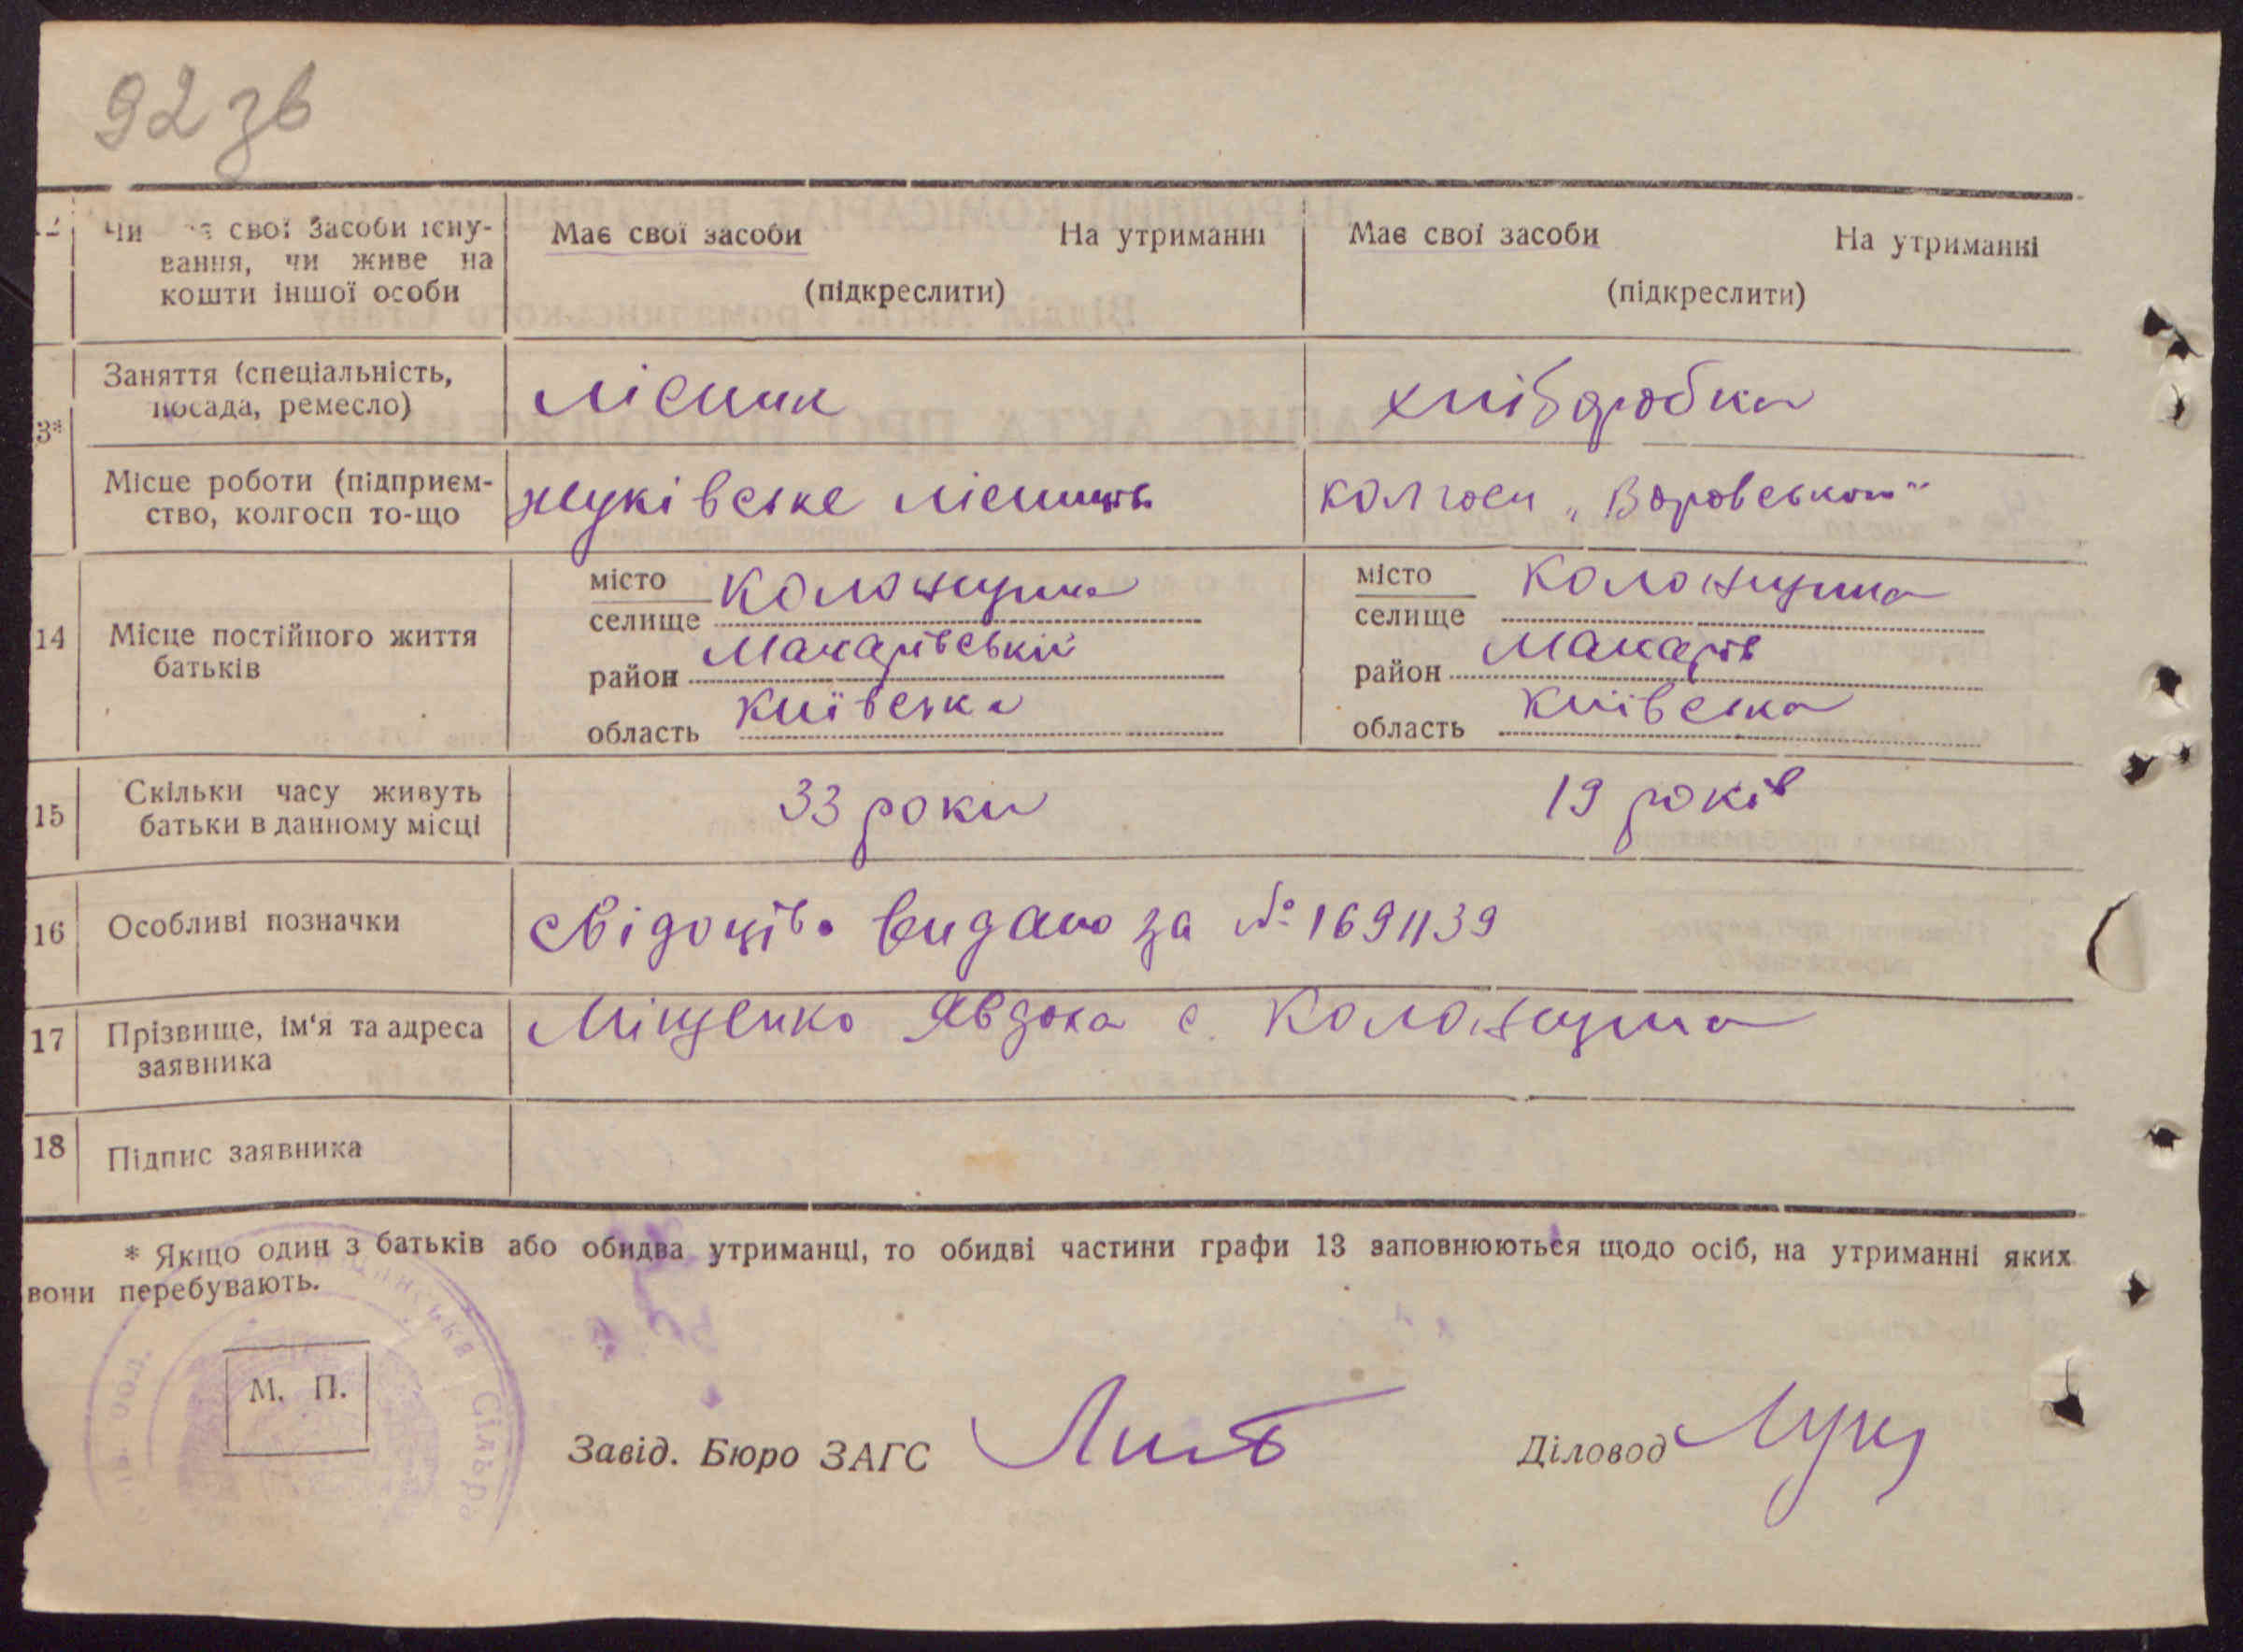 92 зв
12 Чи має свої засоби існу- Має свої засоби На утриманні Має свої засоби На утриманні
вання, чи живе на
кошти іншої особи (підкреслити) (підкреслити)
Заняття (спеціальність,
посада, ремесло) лісник хліборобка
3*
Місце роботи (підприєм- жуківське лісництв колгосп „Воровського"
ство, колгосп то-що
місто Колонщина місто Колонщина
селище селище
14 Місце постійного життя Макарівський Макарів
батьків район район
Київська Київська
область область
Скільки часу живуть 33 роки 19 років
15 батьки в данному місці
16 Особливі позначки Свідоцтв. видано за № 1691139
17 Прізвище, ім'я та адреса Міщенко Явдоха с. Колонщина
заявника
18 Підпис заявника
* Якщо один з батьків або обидва утриманці, то обидві частини графи 13 заповнюються щодо осіб, на утриманні яких
вони перебувають.
М. П.
Завід. Бюро ЗАГС Діловод